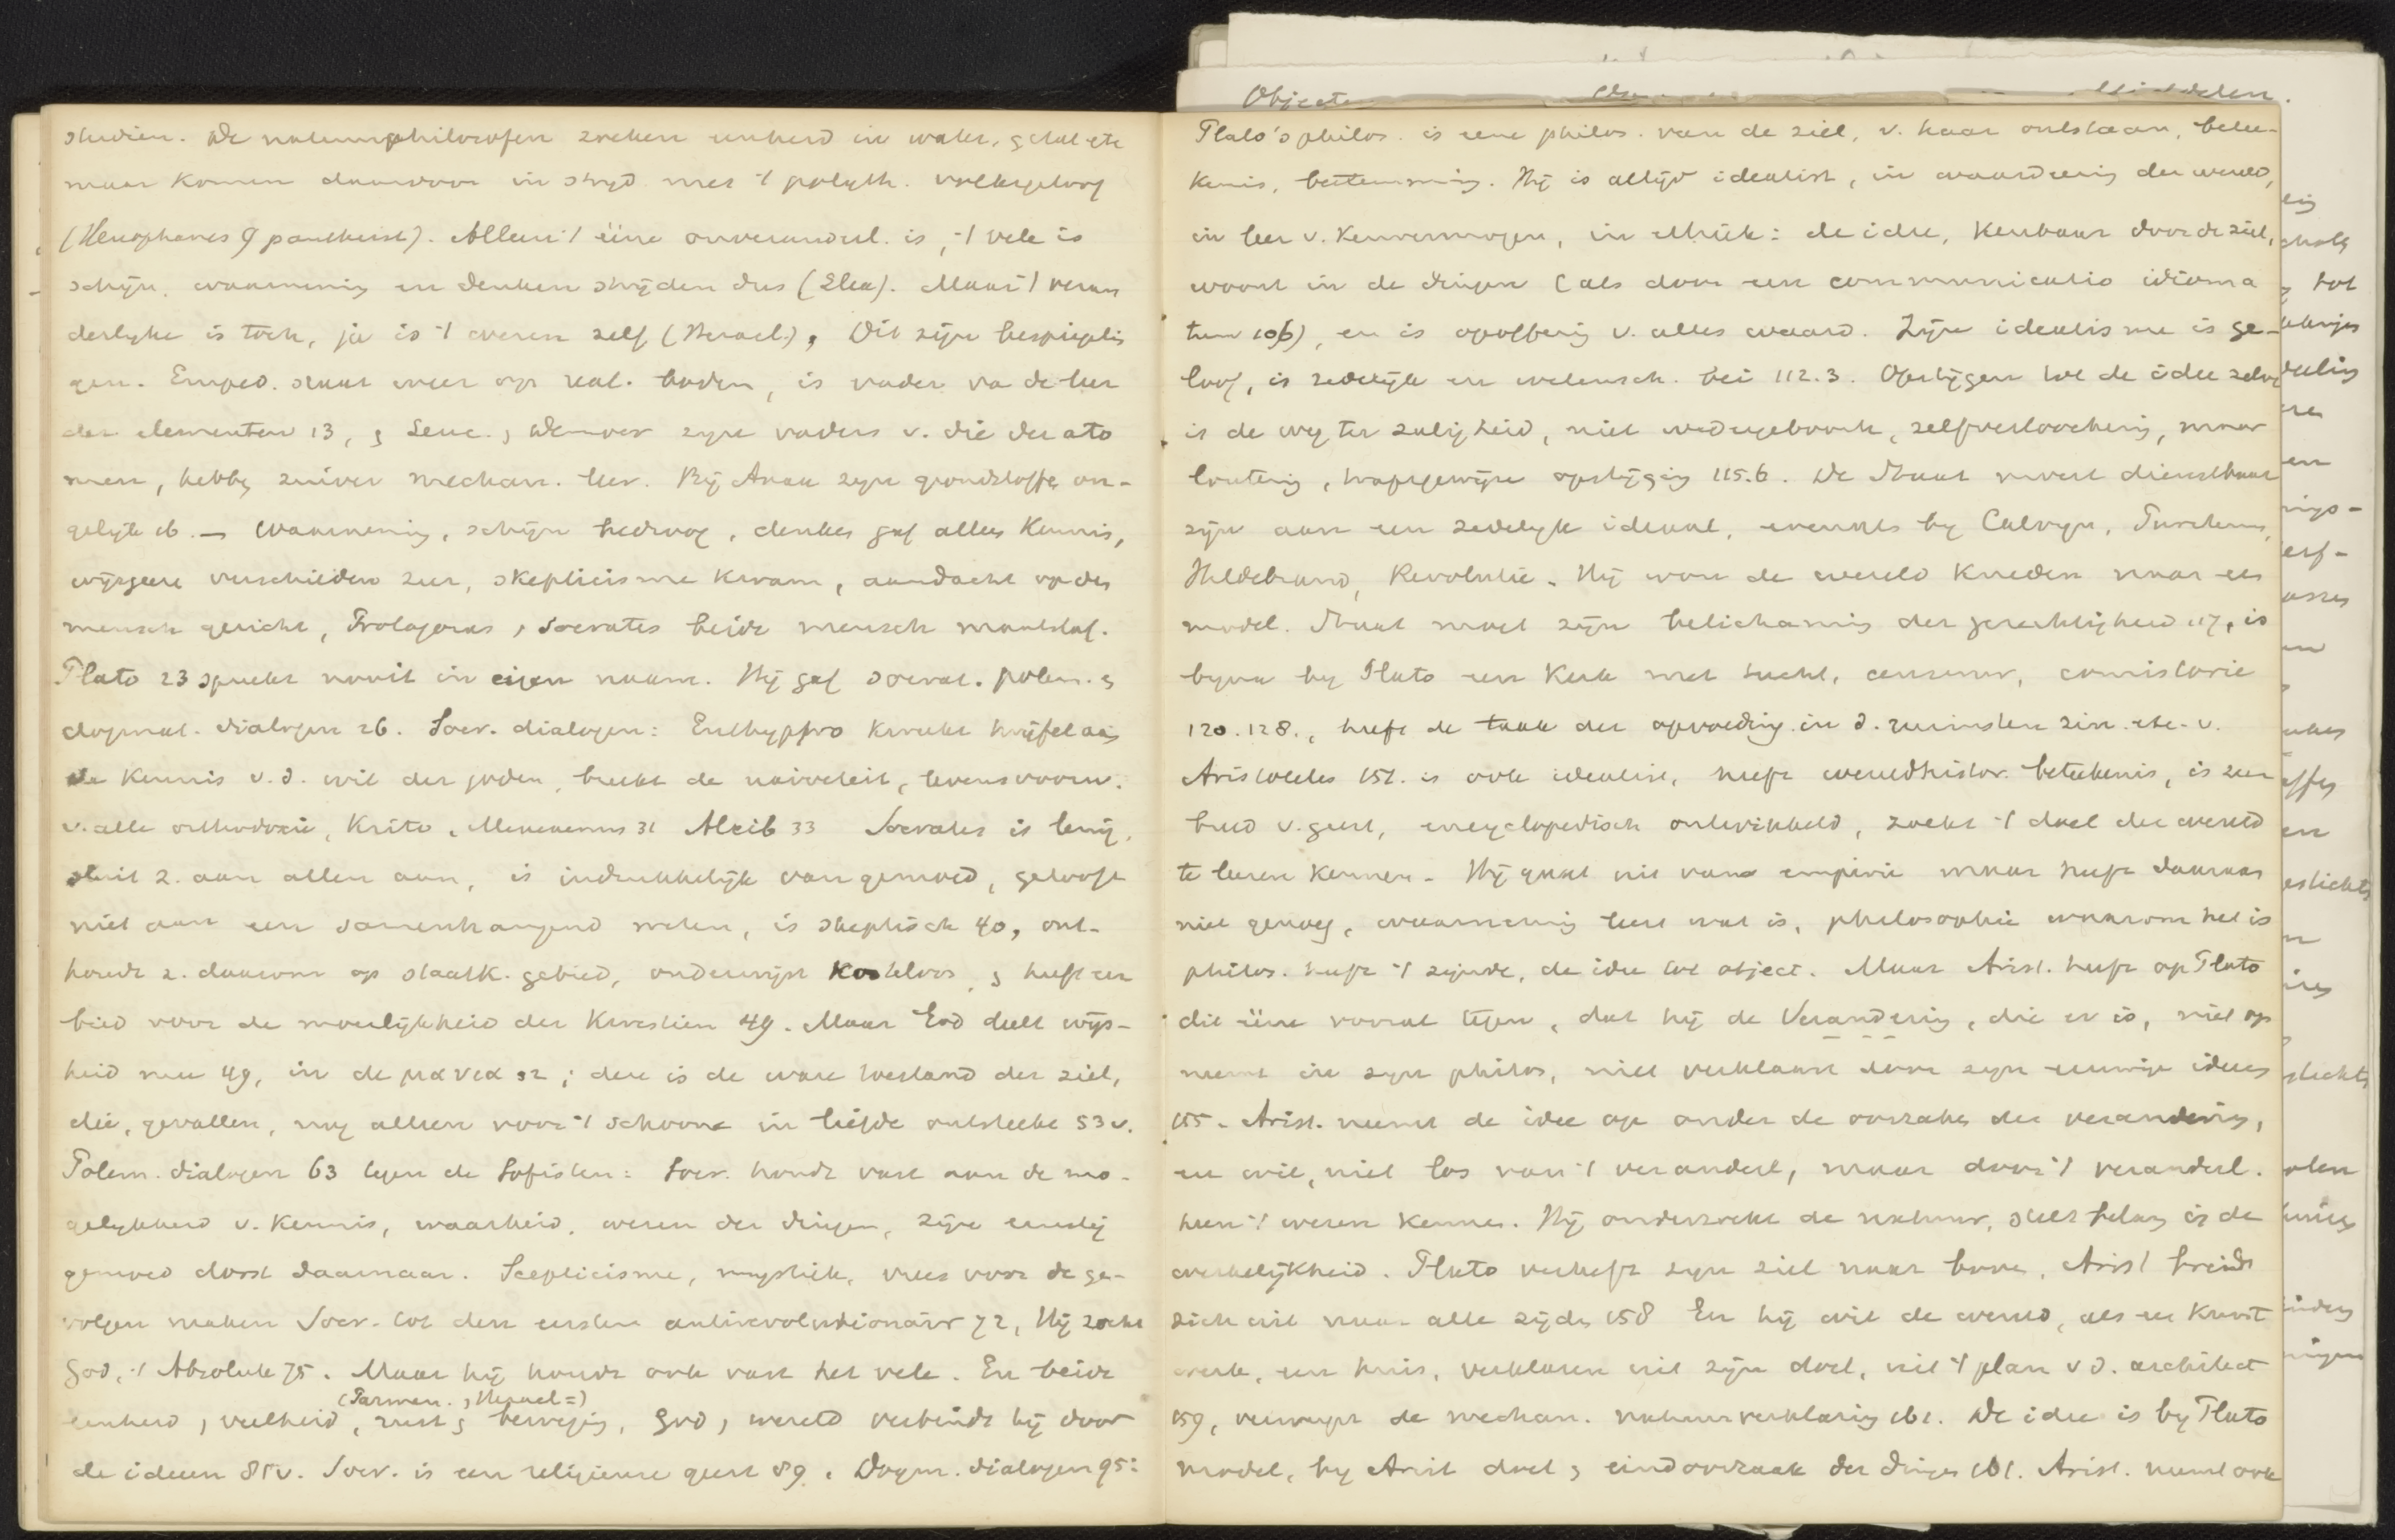 studien. De natuurphilosofen zoeken eenheid in water, getal etc
maar komen daardoor in strijd met 't polyth. volksgeloof
(Xenophanes 9 pantheist). Alleen 't ééne onveranderl. is, 't vele is
schijn, waarneming en denken strijden dus (Elea). Maar 't veran
derlijke is toch, ja is 't wezen zelf (Heracl.), Dit zijn bespiegelin
gen. Emped. staat weer op real. bodem, is vader va de leer
der elementen 13, & Leuc. & Democr zijn vaders v. die der ato
men, hebben zuiver mechan. leer. Bij Anax zijn grondstoffen on-
gelijk 16. — Waarneming, schijn bedroog, denken gaf alleen kennis,
wijsgeeren verschilden zeer, skepticisme kwam, aandacht op den
mensch gericht, Protagoras & Socrates beide mensch maatstaf.
Plato 23 spreekt nooit in eigen naam. Hij gaf socrat. polem. &
dogmat. dialogen 26. Socr. dialogen: Euthyphro kweekt twijfel aan
de kennis v.d. wil der goden, breekt de naiveteit, levensvoorw.
v. alle orthodoxie, Krito, Menexenus 31 Alcib 33 Socrates is
sluit z. aan allen aan, is indrukkelijk van gemoed, gelooft
niet aan een samenhangend weten, is skeptisch 40, ont-
houdt z. daarom op staatk. gebied, onderwijst kosteloos, & heeft een
voor de moeilijkheid der kwestien 49. Maar God deelt wijs-
heid mee 49, in de μανια 52; deze is de ware toestand der ziel,
die, gevallen, nog alleen voor 't schoone in liefde ontsteekt 53v.
Polem. dialogen 63 tegen de Sofisten: Socr. houdt vast aan de mo-
gelijkheid v. kennis, waarheid, wezen der dingen, zijn ernstig
gemoed dorst daarnaar. Scepticisme, mystiek, vrees voor de ge-
volgen maken Socr. tot den eersten antirevolutionair 72, Hij zocht
God, 't Absolute 75. Maar hij houdt ook vast het vele. En beide
(Parmen. & Heracl=)
eenheid & veelheid, rust & beweging, God & wereld verbindt hij door
de ideeen 85v. Socr. is een religieuse geest 89. Dogm. dialogen 95:
Objecten
Plato's philos. is eene philos. van de ziel, v. haar ontstaan, betee-
kenis, bestemming. Hij is altijd idealist, in waardeering der wereld,
in leer v. kenvermogen, in ethiek: de idee, kenbaar door de ziel,
woont in de dingen (als door een communicatio idioma
tum 106), en is opoffering v. alles waard. Zijn idealisme is ge-
loof, is zedelijk en wetensch. bei 112.3. Opstijgen tot de idee zelve
is de weg ter zaligheid, niet wedergeboorte, zelfverloochening, maar
loutering, trapsgewijze opstijging 115.6. De Staat moet dienstbaar
zijn aan een zedelijk ideaal, evenals bij Calvijn,
Hildebrand, Revolutie. Hij wou de wereld kneden naar een
model. Staat moet zijn belichaming der gerechtigheid 117, is
bijna bij Plato een kerk met tucht, censuur, consistorie
120.128., heeft de taak der opvoeding in d. ruimsten zin. etc. v.
Aristoteles 151. is ook idealist, heeft wereldhistor. beteekenis, is zeer
breed v. geest, encyclopedisch ontwikkeld, zoekt 't doel der wereld
te leeren kennen. Hij gaat uit van empirie maar heeft daaraan
niet genoeg, waarneming leert wat is, philosophie waarom het is
philos. heeft 't zijnde, de idee tot object. Maar Arist. heeft op Plato
dit ééne vooral tegen, dat hij de Verandering, die er is, niet op
neemt in zijn philos, niet verklaart door zijn eeuwige ideeen
155. Arist. neemt de idee op onder de oorzaken der verandering,
en wil, niet los van 't veranderl, maar door 't veranderl.
heen 't wezen kennen. Hij onderzoekt de natuur, stelt belang in de
werkelijkheid. Plato verheft zijn ziel naar boven, Arist breidt
zich uit naar alle zijden 158 En hij wil de wereld, als een kunst
werk, een huis, verklaren uit zijn doel, uit 't plan v d. architect
159, verwerpt de mechan. natuurverklaring 161. De idee is bij Plato
model, bij Arist doel & eindoorzaak der dingen 161. Arist. neemt ook